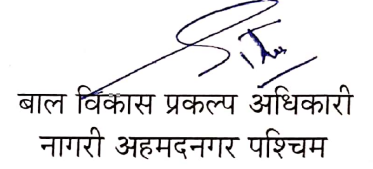 बाल विकास प्रकल्प अधिकारी
नागरी अहमदनगर पश्चिम